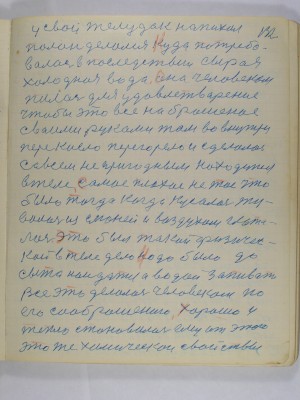 и свой желудак напихал 132
полон делался Куда потребо-
валась впоследствии сырая
холодная вода. Она человеком
пилась для удовлетварение
чтобы это все набрашеное
своими руками там во внутри
перекисло перегорело и сделалос
совсем непригодным находится
в теле, самое плохое не то это
было тогда когда кусалась жи-
валась слюней и воздухом глата-
лась Это был такой физичес-
кой в теле дело Надо было до
сыта наедатся а водой запиват
Все это делалос человеком по
его соображению, хорошо и
тепло становилась ему от этого
это же химическое свойства